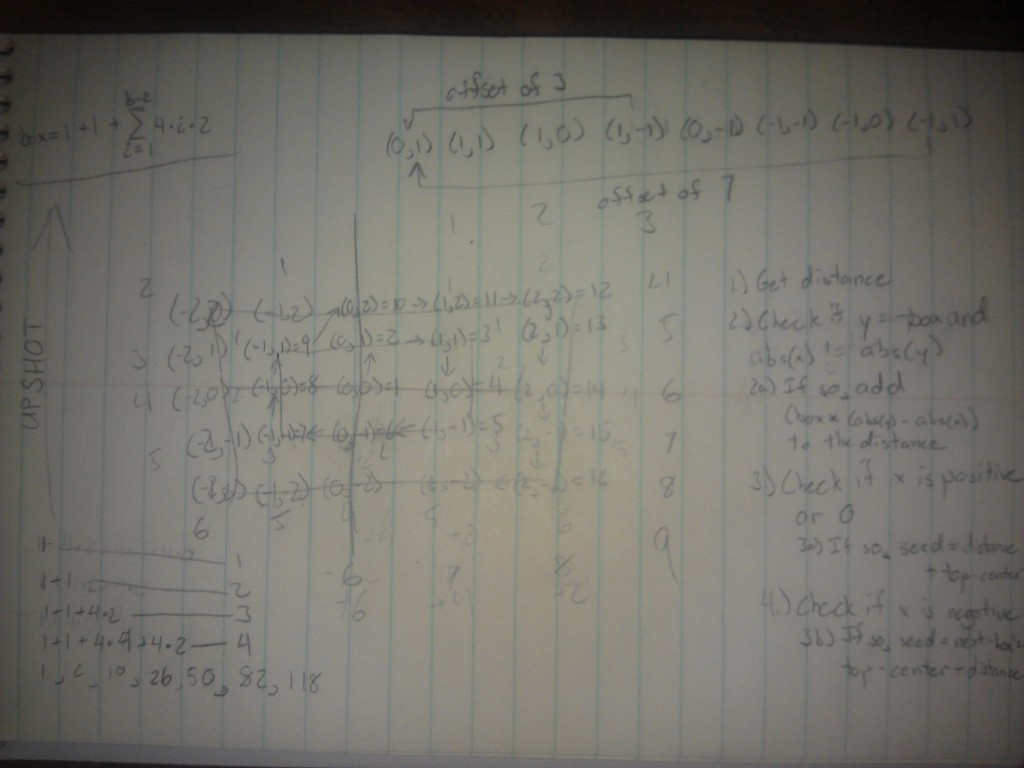 offset of 3
box=1+1+ b-2 Σ i=1 4·i·2
(0,1) (1,1) (1,0) (1,-1) (0,-1) (-1,-1) (-1,0) (-1,1)
offset of 7
1 2 3
1 2
2 (-2,2) (-1,2) (0,2)=10 → (1,2)=11 → (2,2)=12 4
3 (-2,1) (-1,1)=9 (0,1)=2 → (1,1)=3 (2,1)=13 5
4 (-2,0) (-1,0)=8 (0,0)=1 (1,0)=4 (2,0)=14 6
5 (-2,-1) (-1,-1)=7 (0,-1)=6 (1,-1)=5 (2,-1)=15 7
(-2,-2) (-1,-2) (0,-2) (1,-2) (2,-2)=16 8
6 5 6 9
6 7 8
UPSHOT
1 1
1+1 2
1+1+4·2 3
1+1+4·4+4·2 4
1, 2, 10, 26, 50, 82, 118
1.) Get distance
2.) Check if y = -box and
abs(x) != abs(y)
2a) If so, add
(box * (abs(y) - abs(x))
to the distance
3.) Check if x is positive
or 0
3a) If so, seed = distance
+ top-center
4.) Check if x is negative
3b) If so, seed = next-box's
top-center - distance